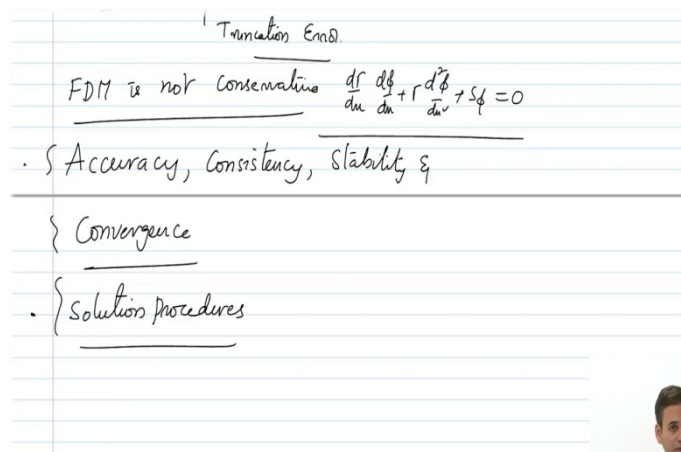 Truncation Error.
FDM is not Conservative dΓ/dx dϕ/dx + Γ d²ϕ/dx² + Sϕ = 0
. { Accuracy, Consistency, Stability &
} Convergence
. { Solution Procedures